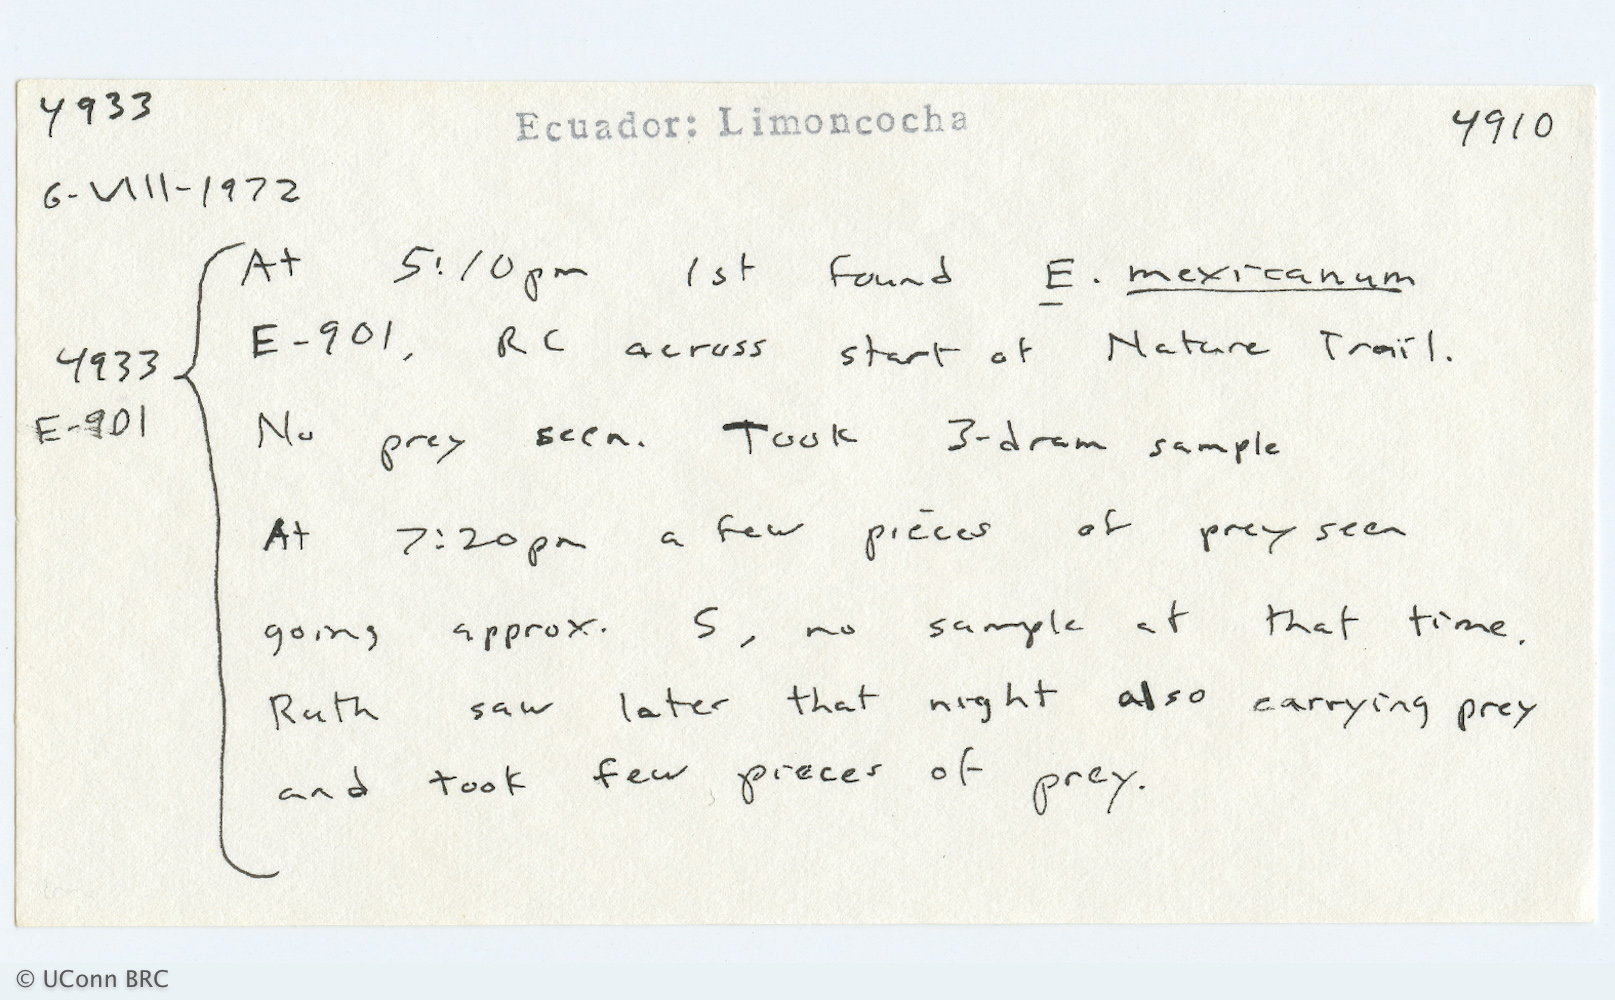 4933
Ecuador: Limoncocha
4910
6-VIII-1972
At 5:10pm 1st found E. mexicanum
E-901, RC across start of Nature Trail.
4933
E-901
No prey seen. Took 3-dram sample
At 7:20pm a few pieces of prey seen
going approx. S, no sample at that time.
Ruth saw later that night also carrying prey
and took few pieces of prey.
© UConn BRC